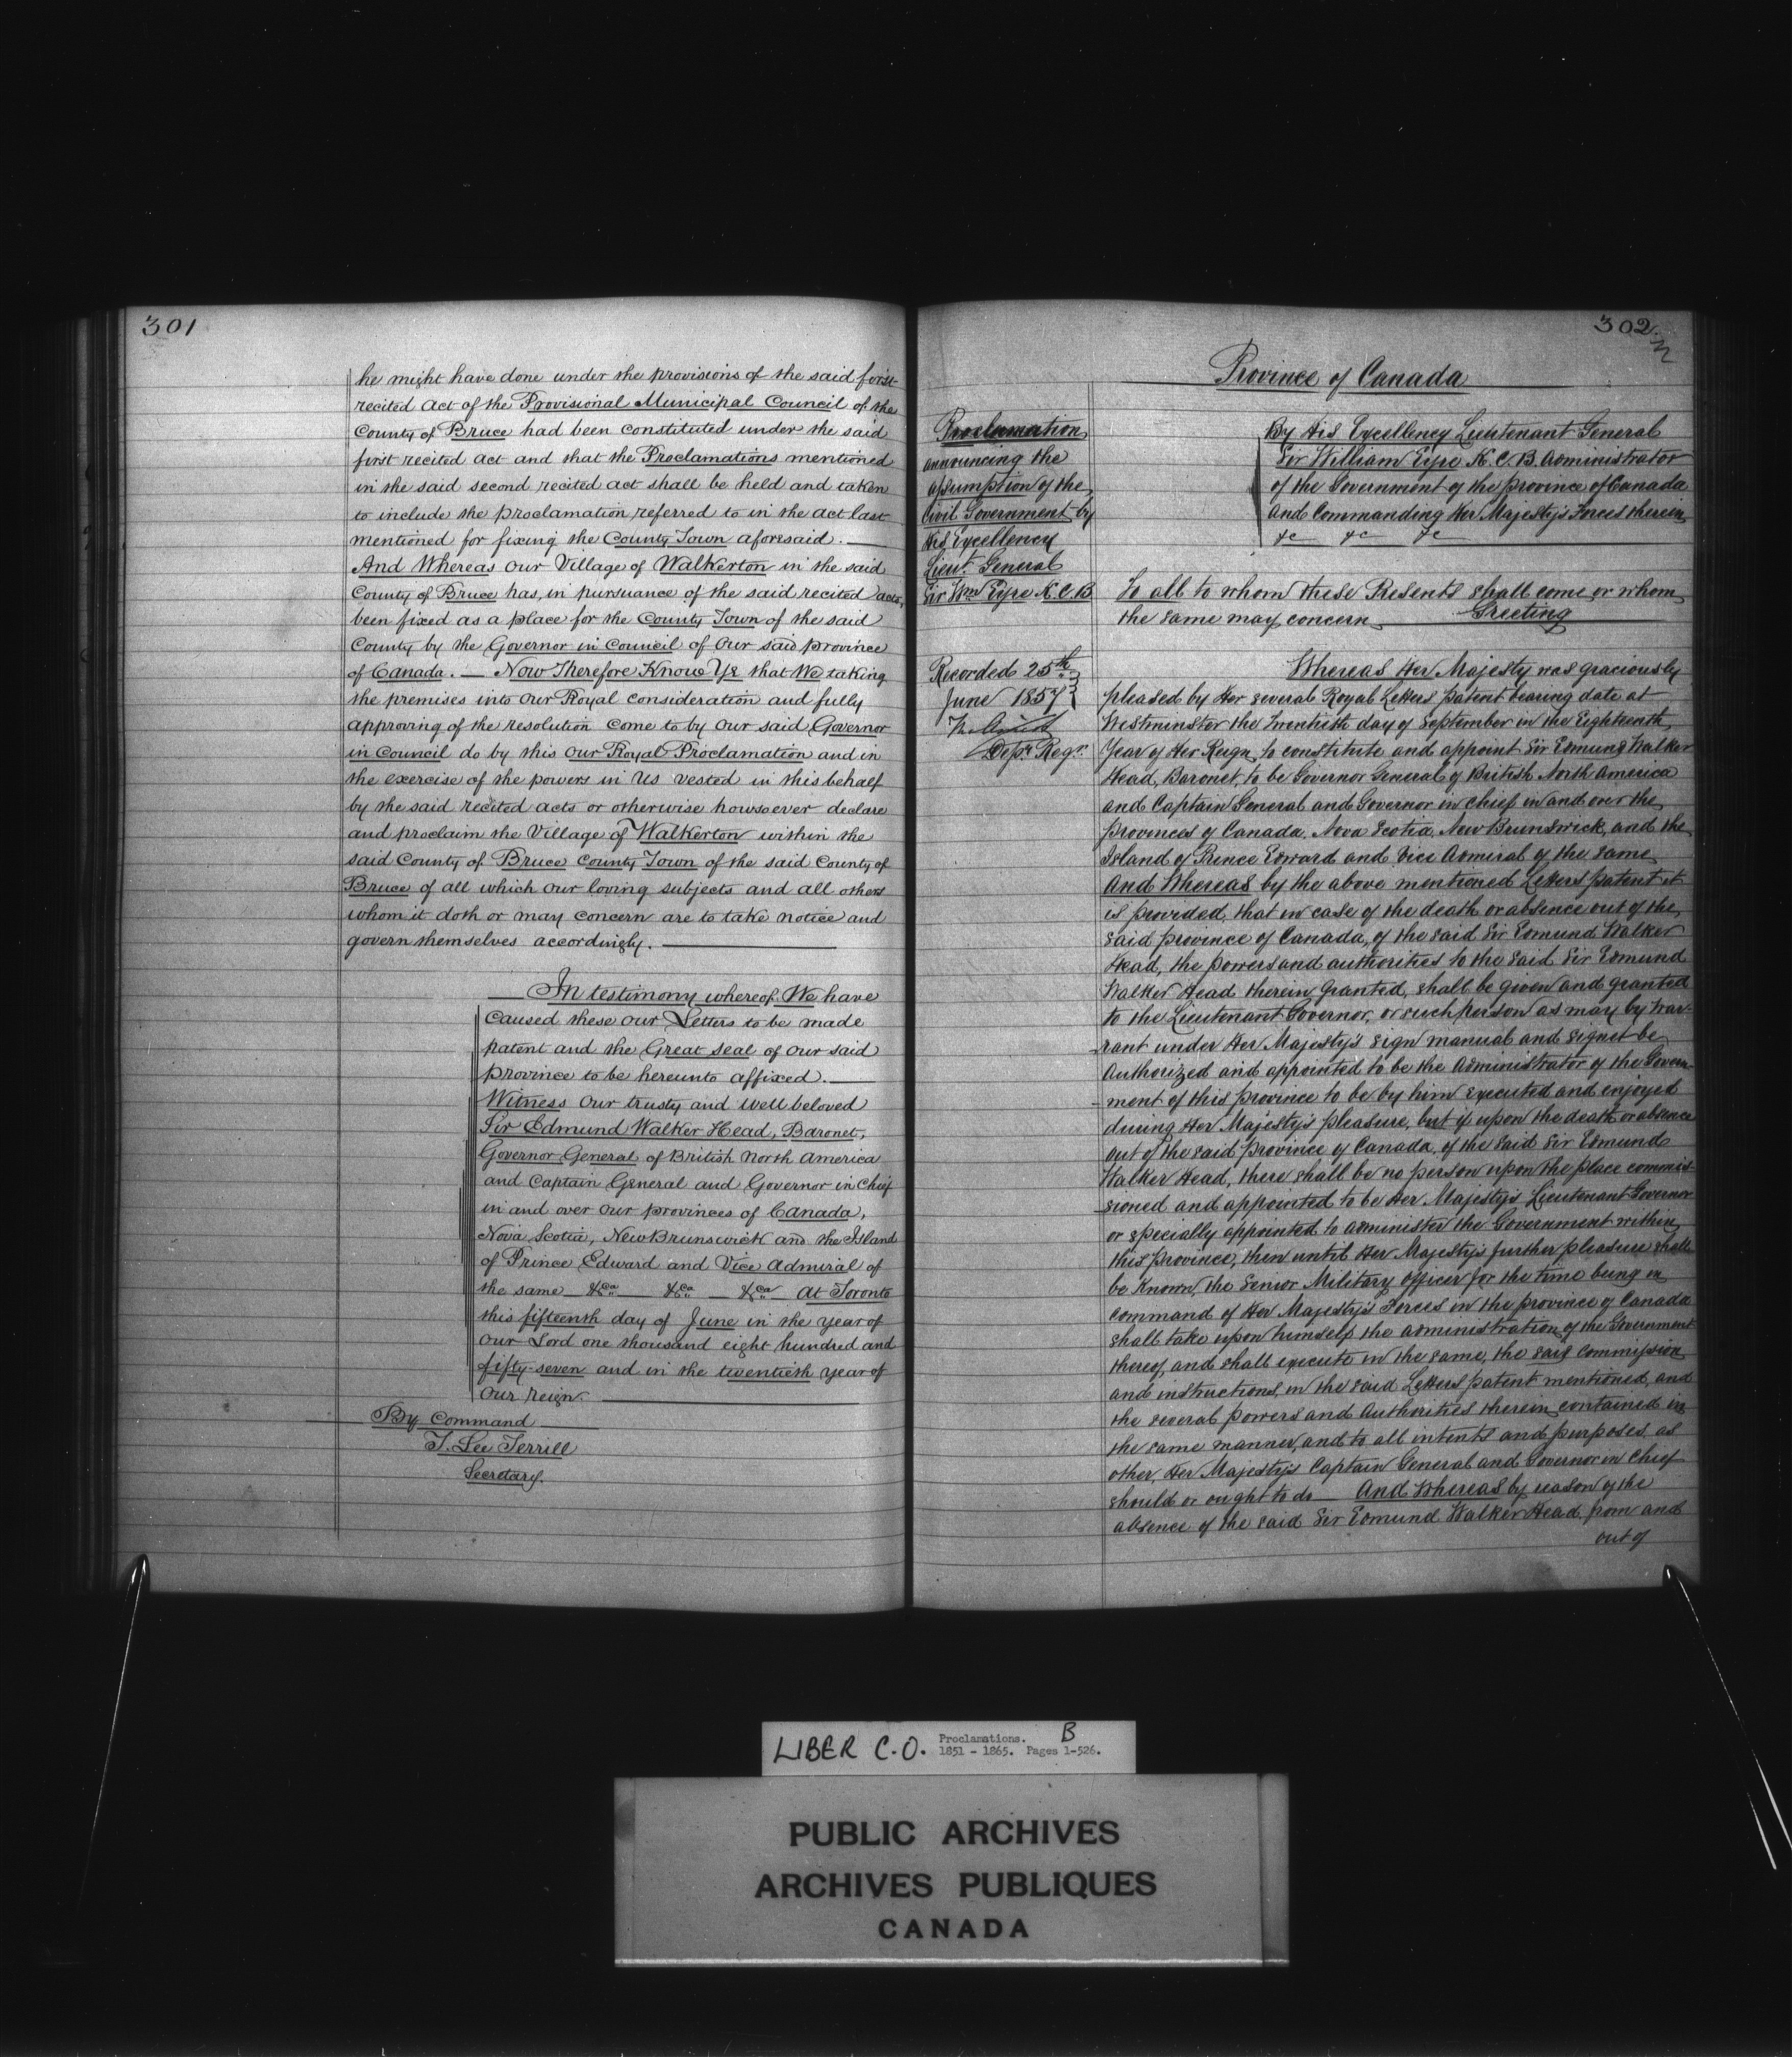 301
he might have done under the provisions of the said first
recited Act of the Provisional Municipal Council of the
County of Bruce had been constituted under the said
first recited act and that the Proclamations mentioned
in the said second recited act shall be held and taken
to include the proclamation referred to in the act last
mentioned for fixing the County Town aforesaid.
And Whereas our Village of Walkerton in the said
County of Bruce has, in pursuance of the said recited acts,
been fixed as a place for the County Town of the said
County by the Governor in Council of Our said province
of Canada. — Now Therefore Know Ye that We taking
the premises into Our Royal consideration and fully
approving of the resolution come to by our said Governor
in Council do by this Our Royal Proclamation and in
the exercise of the powers in Us vested in this behalf
by the said recited acts or otherwise howsoever declare
and proclaim the Village of Walkerton within the
said County of Bruce County Town of the said County of
Bruce of all which our loving subjects and all others
whom it doth or may concern are to take notice and
govern themselves accordingly.
In testimony whereof We have
caused these our Letters to be made
patent and the Great Seal of our said
province to be hereunto affixed.
Witness our trusty and well beloved
Sir Edmund Walker Head, Baronet,
Governor General of British North America
and Captain General and Governor in Chief
in and over our provinces of Canada,
Nova Scotia, New Brunswick and the Island
of Prince Edward and Vice Admiral of
the same &ca &ca &ca At Toronto
this fifteenth day of June in the year of
Our Lord one thousand eight hundred and
fifty-seven and in the twentieth year of
Our reign.
By Command
T. Lee Terrill
Secretary.
302
Province of Canada
Proclamation
announcing the
assumption of the
Civil Government by
His Excellency
Lieut. General
Sir Wm Eyre K.C.B
Recorded 25th
June 1857
Depy Regr.
By His Excellency Lieutenant General
Sir William Eyre K.C.B. Administrator
of the Government of the Province of Canada
and Commanding Her Majesty's Forces therein
&c &c &c
To all to whom these Presents shall come or whom
the same may concern Greeting
Whereas Her Majesty was graciously
pleased by Her several Royal Letters patent bearing date at
Westminster the twentieth day of September in the Eighteenth
Year of Her Reign, to constitute and appoint Sir Edmund Walker
Head, Baronet, to be Governor General of British North America
and Captain General and Governor in chief in and over the
provinces of Canada, Nova Scotia, New Brunswick, and the
Island of Prince Edward and Vice Admiral of the same
And Whereas by the above mentioned Letters patent it
is provided, that in case of the death or absence out of the
said province of Canada, of the said Sir Edmund Walker
Head, the powers and authorities to the said Sir Edmund
Walker Head therein granted, shall be given and granted
to the Lieutenant Governor, or such person as may by War-
rant under Her Majesty's sign manual and signet be
Authorized and appointed to be the Administrator of the Govern-
-ment of this province to be by him executed and enjoyed
during Her Majesty's pleasure, but if upon the death or absence
out of the said province of Canada, of the said Sir Edmund
Walker Head, there shall be no person upon the place commis-
sioned and appointed to be Her Majesty's Lieutenant Governor
or specially appointed to administer the Government within
this province, then until Her Majesty's further pleasure shall
be known, the Senior Military Officer for the time being in
command of Her Majesty's Forces in the province of Canada
shall take upon himself the administration of the Government
thereof, and shall execute in the same, the said commission
and instructions, in the said Letters patent mentioned, and
the several powers and Authorities therein contained in
the same manner, and to all intents and purposes, as
other, Her Majesty's Captain General and Governor in Chief
should or ought to do And Whereas by reason of the
absence of the said Sir Edmund Walker Head, from and
out of
LIBER C.O. Proclamations. B
1851 - 1865. Pages 1-526.
PUBLIC ARCHIVES
ARCHIVES PUBLIQUES
CANADA